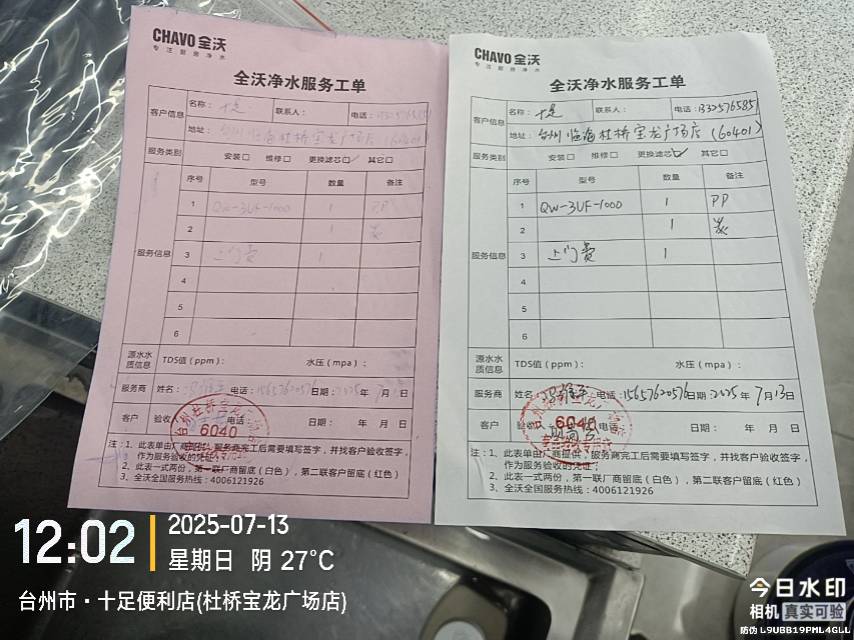 CHAVO 全沃
专注厨房净水
全沃净水服务工单
客户信息
名称：十足
联系人：
电话：
地址：台州临海杜桥宝龙广场店（60401）
服务类别
安装□ 维修□ 更换滤芯☑ 其它□
服务信息
序号 型号 数量 备注
1 QW-3UF-1000 1 PP
2 1 炭
3 上门费 1
4
5
6
源水水质信息
TDS值（ppm）： 水压（mpa）：
服务商
姓名： 电话：15657620576 日期：2025 年 7 月 日
客户
验收 电话： 日期： 年 月 日
6040
注：1、此表单由厂商提供，服务商完工后需要填写签字，并找客户验收签字，
作为服务验收的凭证；
2、此表一式两份，第一联厂商留底（白色），第二联客户留底（红色）
3、全沃全国服务热线：4006121926
CHAVO 全沃
专注厨房净水
全沃净水服务工单
客户信息
名称：十足
联系人：
电话：13325765851
地址：台州临海杜桥宝龙广场店（60401）
服务类别
安装□ 维修□ 更换滤芯☑ 其它□
服务信息
序号 型号 数量 备注
1 QW-3UF-1000 1 PP
2 1 炭
3 上门费 1
4
5
6
源水水质信息
TDS值（ppm）： 水压（mpa）：
服务商
姓名： 电话：15657620576 日期：2025 年 7 月 13 日
客户
验收 电话： 日期： 年 月 日
6040
注：1、此表单由厂商提供，服务商完工后需要填写签字，并找客户验收签字，
作为服务验收的凭证；
2、此表一式两份，第一联厂商留底（白色），第二联客户留底（红色）
3、全沃全国服务热线：4006121926
12:02
2025-07-13
星期日 阴 27°C
台州市·十足便利店(杜桥宝龙广场店)
今日水印
相机 真实可验
防伪 L9UBB19PML4GLL